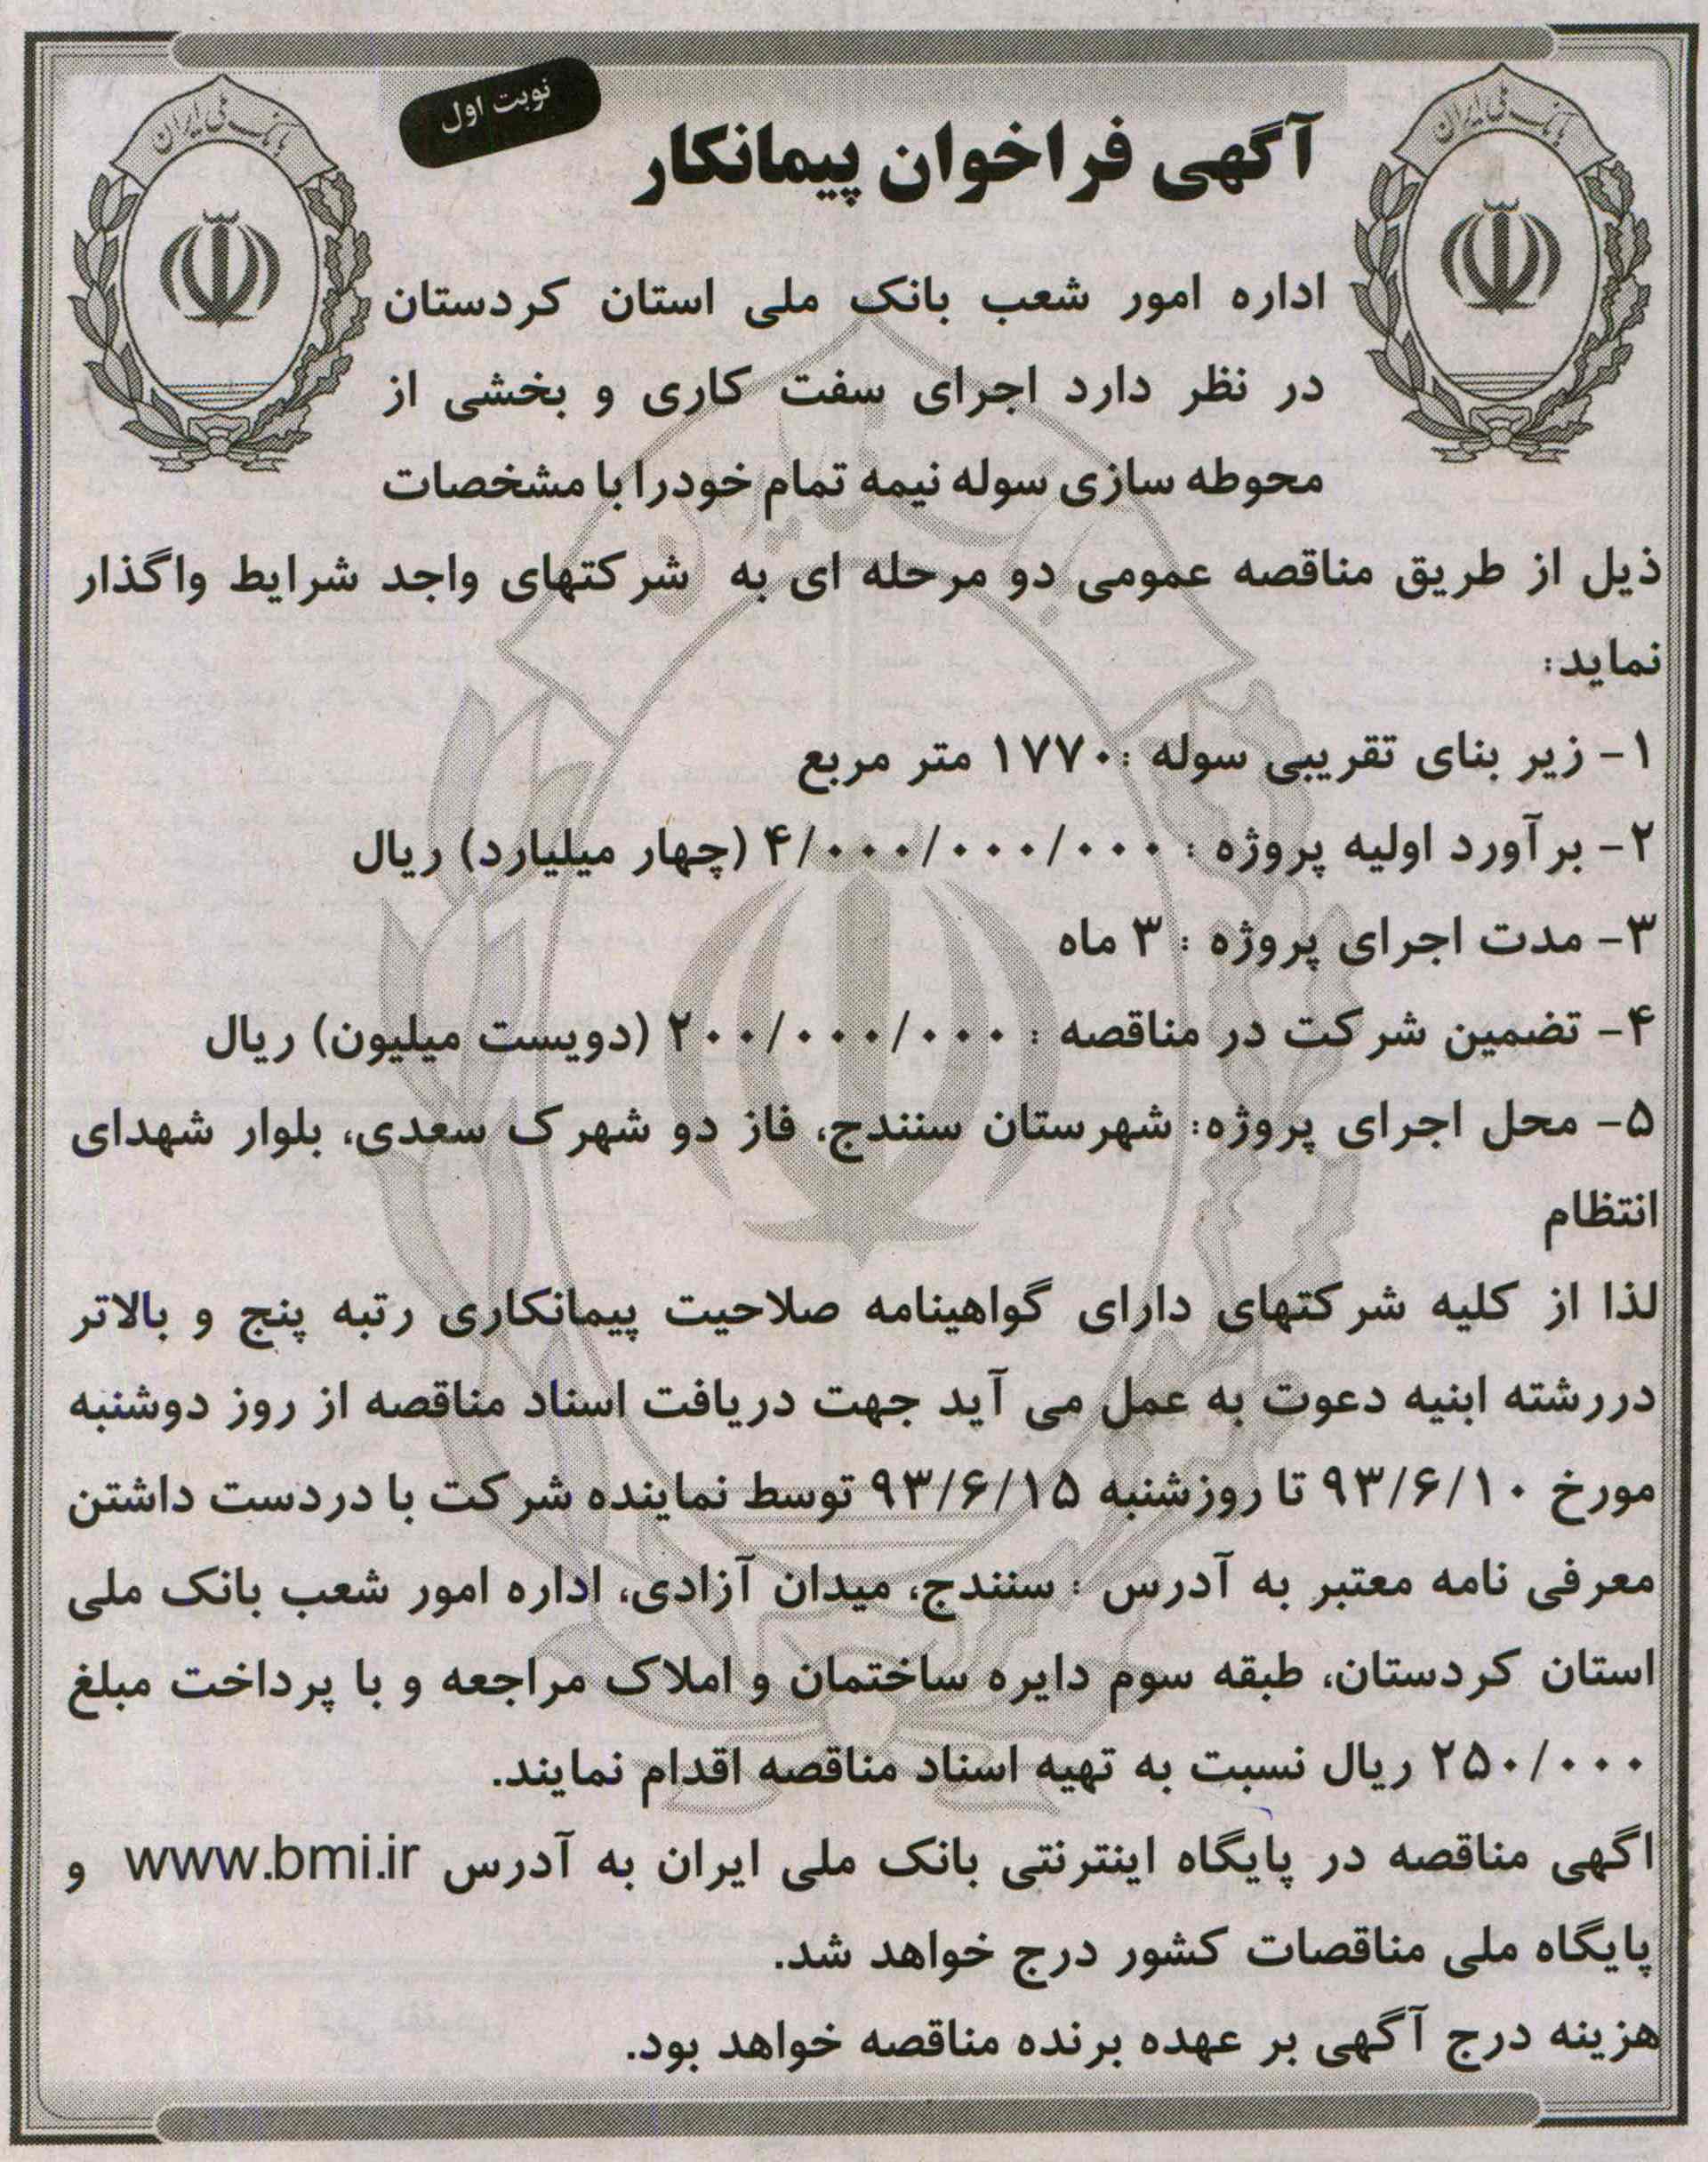 بانک ملی ایران
بانک ملی ایران
نوبت اول
آگهی فراخوان پیمانکار
اداره امور شعب بانک ملی استان کردستان
در نظر دارد اجرای سفت کاری و بخشی از
محوطه سازی سوله نیمه تمام خودرا با مشخصات
ذیل از طریق مناقصه عمومی دو مرحله ای به شرکتهای واجد شرایط واگذار
نماید:
۱- زیر بنای تقریبی سوله :۱۷۷۰ متر مربع
۲- برآورد اولیه پروژه : ۴/۰۰۰/۰۰۰/۰۰۰ (چهار میلیارد) ریال
۳- مدت اجرای پروژه : ۳ ماه
۴- تضمین شرکت در مناقصه : ۲۰۰/۰۰۰/۰۰۰ (دویست میلیون) ریال
۵- محل اجرای پروژه: شهرستان سنندج، فاز دو شهرک سعدی، بلوار شهدای
انتظام
لذا از کلیه شرکتهای دارای گواهینامه صلاحیت پیمانکاری رتبه پنج و بالاتر
دررشته ابنیه دعوت به عمل می آید جهت دریافت اسناد مناقصه از روز دوشنبه
مورخ ۹۳/۶/۱۰ تا روزشنبه ۹۳/۶/۱۵ توسط نماینده شرکت با دردست داشتن
معرفی نامه معتبر به آدرس : سنندج، میدان آزادی، اداره امور شعب بانک ملی
استان کردستان، طبقه سوم دایره ساختمان و املاک مراجعه و با پرداخت مبلغ
۲۵۰/۰۰۰ ریال نسبت به تهیه اسناد مناقصه اقدام نمایند.
اگهی مناقصه در پایگاه اینترنتی بانک ملی ایران به آدرس www.bmi.ir و
پایگاه ملی مناقصات کشور درج خواهد شد.
هزینه درج آگهی بر عهده برنده مناقصه خواهد بود.